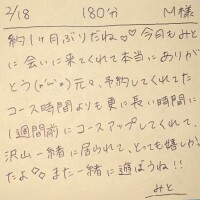 2/18 180分 M様
約1ヶ月ぶりだね♡♡ 今月もみと
に会いに来てくれて本当にありが
とう(о´∀`о)元々、予約してくれてた
コース時間よりも更に長い時間に
1週間前にコースアップしてくれて、
沢山一緒に居られて、とっても嬉しか
たよ♡。また一緒に遊ぼうね!!
みと